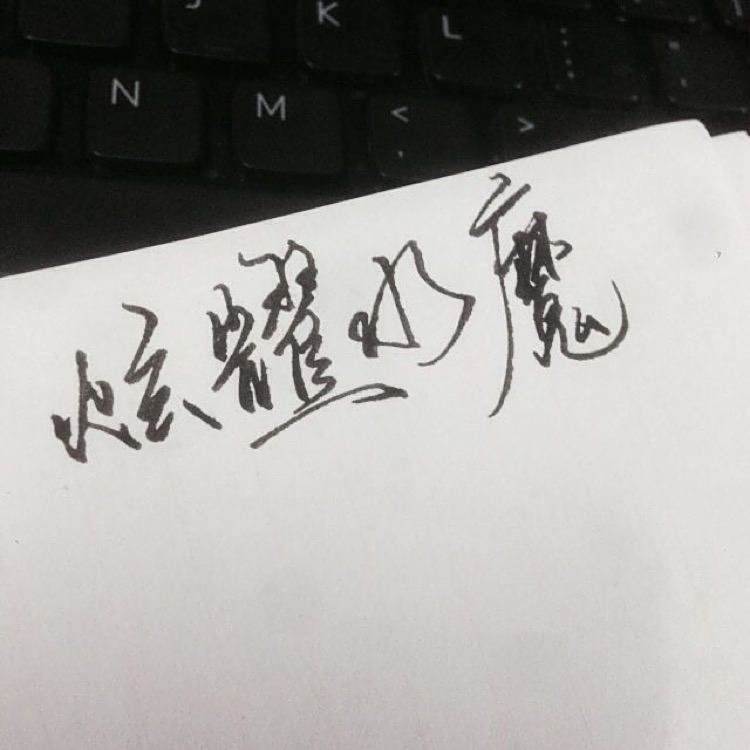 J K L
N M < ,
>
炫耀水魔